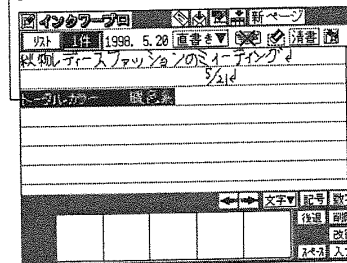 インクワープロ 新ページ
リスト 1件 1998. 5.20 直書き▼ 清書
秋物レディースファッションのミィーティング
5/21
トータルカラー
文字▼ 記号 数字
後退 削
改
スペース 入